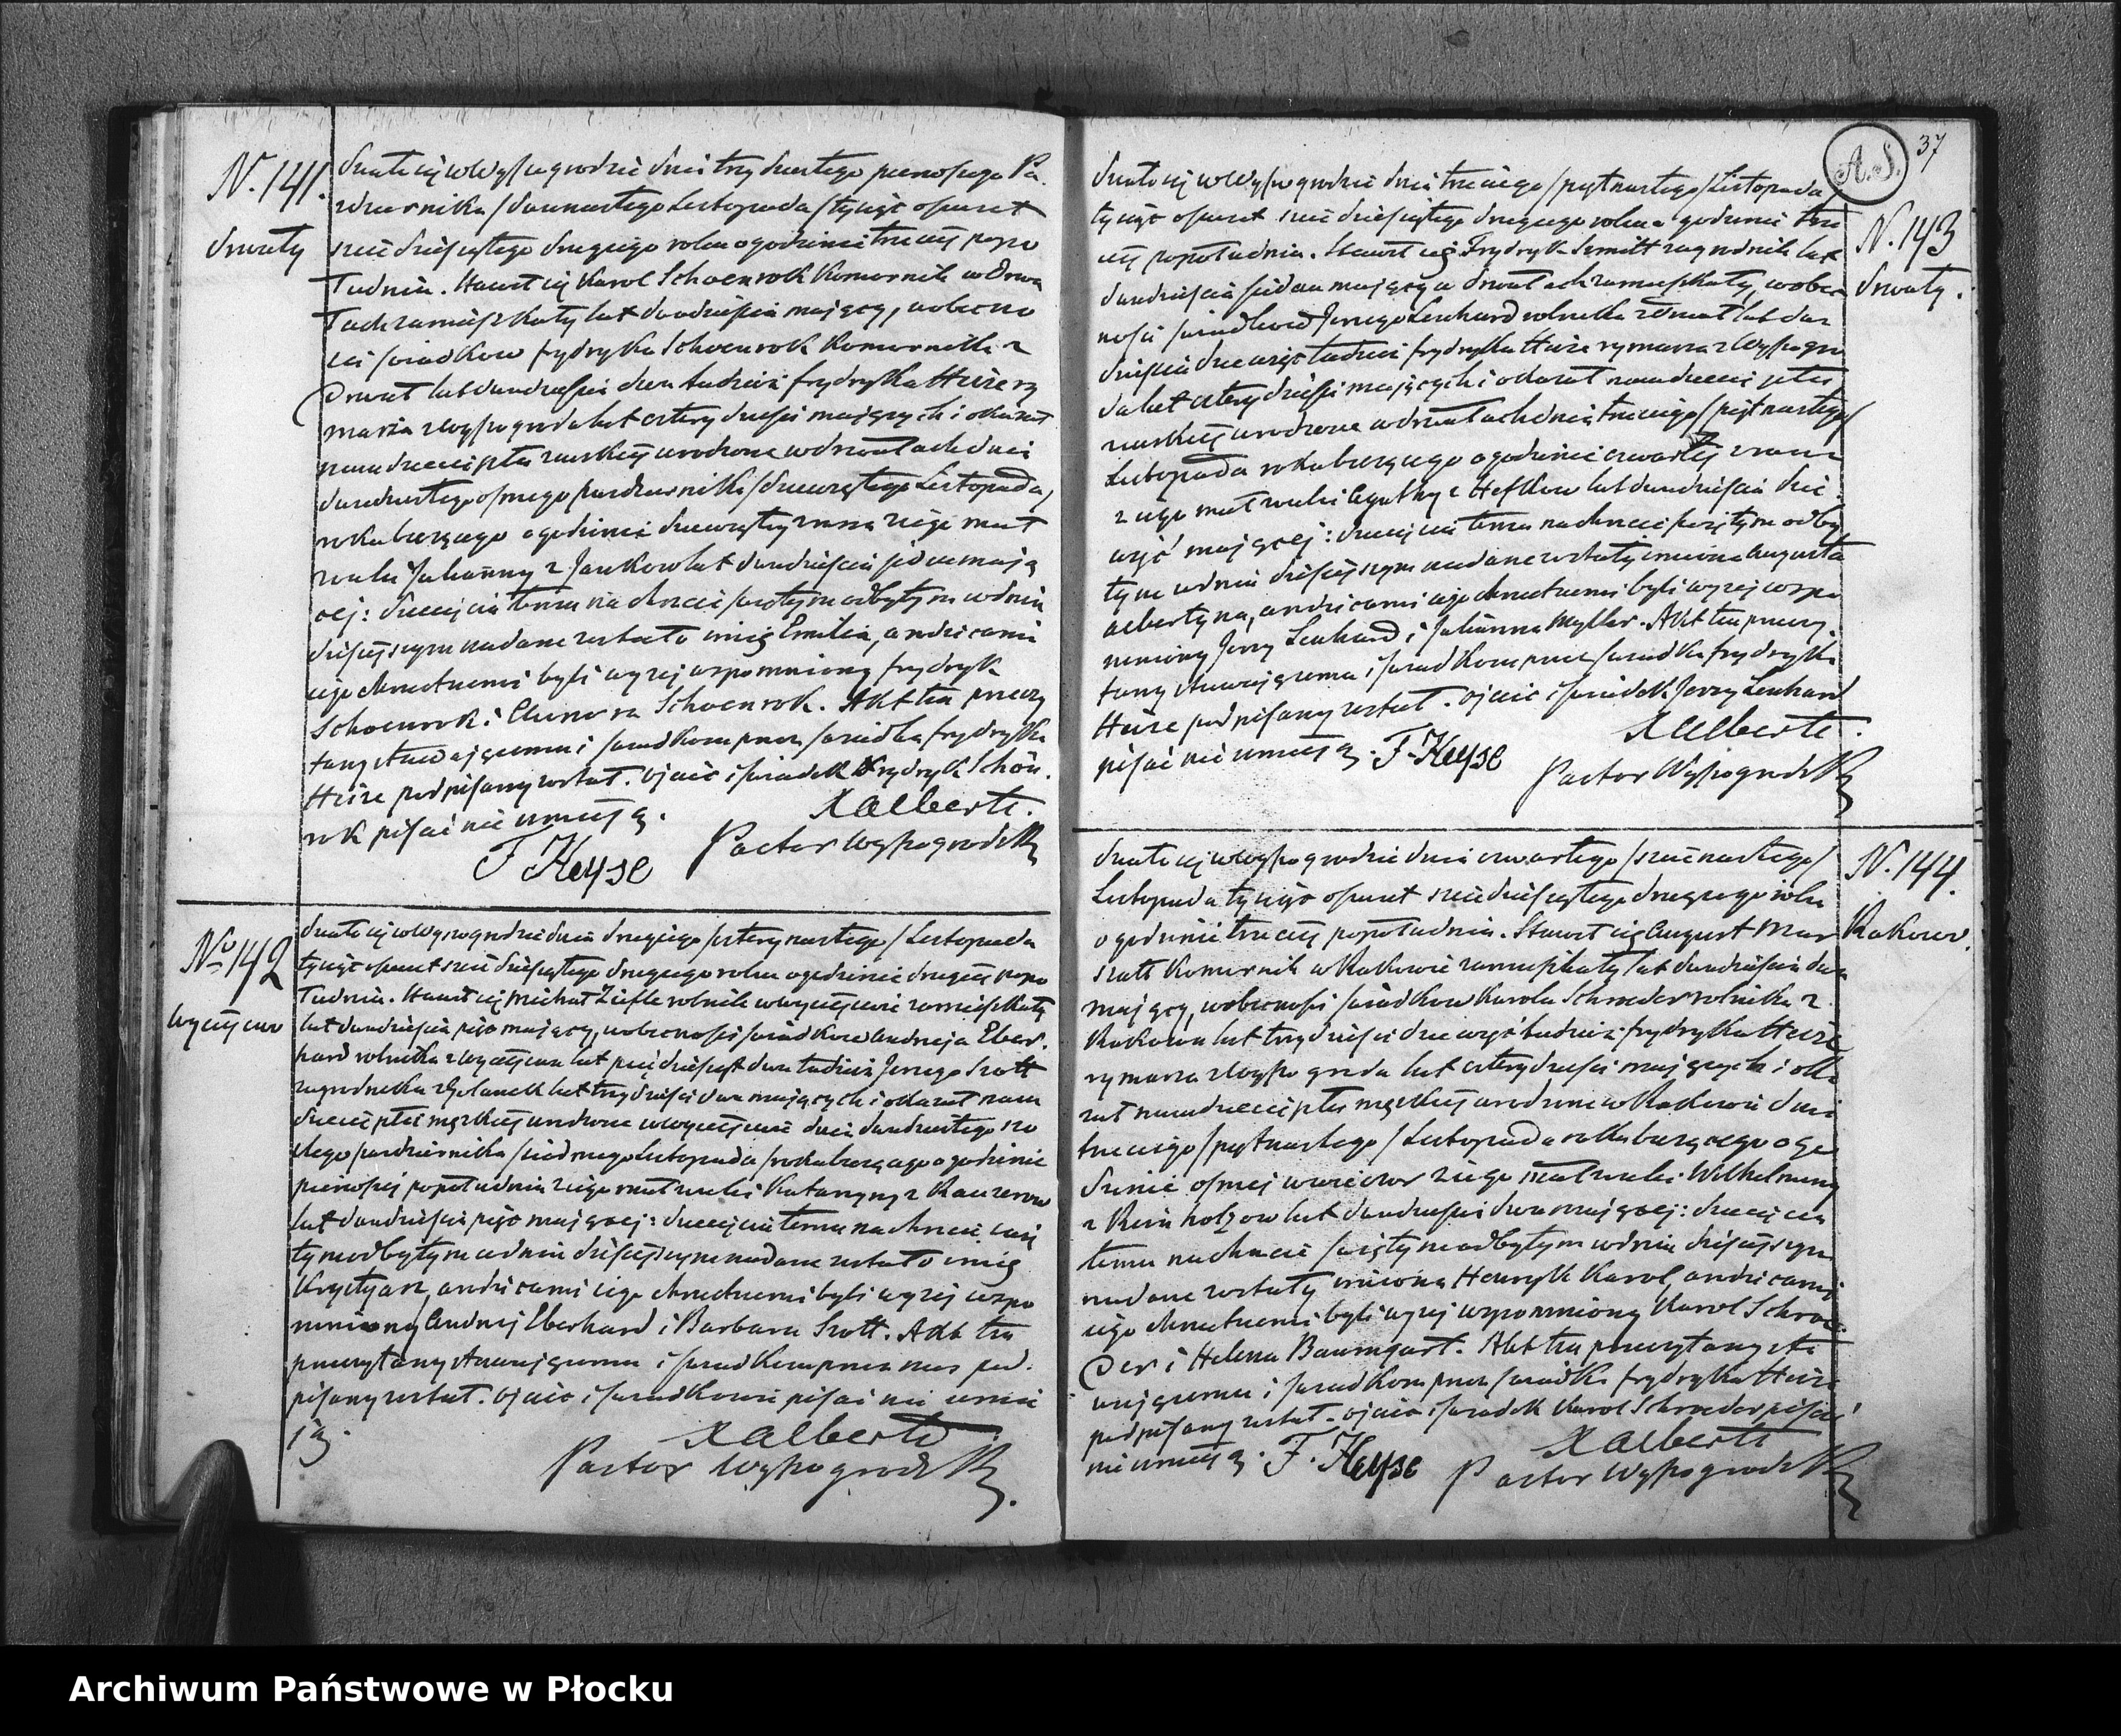 N. 141.
Drwały
Działo się w Wyszogrodzie dnia trzydziestego pierwszego Pa
zdziernika /dwunastego Listopada/ tysiąc osmset
sześćdziesiątego drugiego roku o godzinie trzeciej popo
łudniu. Stawił się Karol Schoenrok Komornik w Drwa
łach zamieszkały lat dwadzieścia mający, w obecno
ści świadków Frydryka Schoenrok Komornika z
Drwał lat dwadzieścia dwa tudzież Frydryka Heize ry
marza z Wyszogroda lat czterydzieści mających i okazał
nam dziecię płci żeńskiej urodzone w Drwałach dnia
dwudziestego osmego Pazdziernika /dziewiątego Listopada/
roku bieżącego o godzinie dziewiątej zrana z jego mał
żonki Julianny z Janków lat dwadzieścia jeden mają
cej: dziecięciu temu na chrzcie świętym odbytym w dniu
dzisiejszym nadane zostało imię Emilia, a rodzicami
jego chrzestnemi byli wyżej wspomniony Frydryk
Schoenrok i Eleonora Schoenrok. Akt ten przeczy
tany stawającemu i świadkom przez świadka Frydryka
Heize podpisany został. Ojciec i świadek Frydryk Schön
rok pisać nie umieją.
X Alberti.
F Heyse
Pastor Wyszogrodzki
No 142
Wyciejewo
Działo się w Wyszogrodzie dnia drugiego /czternastego/ Listopada
tysiąc osmset sześćdziesiątego drugiego roku o godzinie drugiej popo
łudniu. Stawił się Michał Ziefle rolnik w Wyciejewie zamieszkały
lat dwadzieścia pięć mający, w obecności świadków Andrzeja Eber
hard rolnika z Wyciejewa lat pięćdziesiąt dwa tudzież Jerzego Szott
zagrodnika z Golanek lat trzydzieści dwa mających i okazał nam
dziecię płci męzkiej urodzone w Wyciejewie dnia dwudziestego szo
stego Pazdziernika /siódmego Listopada/ roku bieżącego o godzinie
pierwszej popołudniu z jego małżonki Katarzyny z Rauzerów
lat dwadzieścia pięć mającej: dziecięciu temu na chrzcie świę
tym odbytym w dniu dzisiejszym nadane zostało imię
Krystyan, a rodzicami jego chrzestnemi byli wyżej wspo
mniony Andrzej Eberhard i Barbara Szott. Akt ten
przeczytany stawającemu i świadkom przez nas pod
pisany został. Ojciec i świadkowie pisać nie umie
ją.
X Alberti
Pastor Wyszogrodzki.
A.S.
37
N. 143
Drwały.
Działo się w Wyszogrodzie dnia trzeciego /piętnastego/ Listopada
tysiąc osmset sześćdziesiątego drugiego roku o godzinie trze
ciej popołudniu. Stawił się Frydryk Szmitt zagrodnik lat
dwadzieścia siedm mający w Drwałach zamieszkały, w obec
ności świadków Jerzego Lenhard rolnika z Drwał lat dwa
dzieścia dziewięć tudzież Frydryka Heize rymarza z Wyszogro
da lat czterydzieści mających i okazał nam dziecię płci
żeńskiej urodzone w Drwałach dnia trzeciego /piętnastego/
Listopada roku bieżącego o godzinie czwartej zrana
z jego małżonki Agathy z Hefków lat dwadzieścia dzie
więć mającej: dziecięciu temu na chrzcie świętym odby
tym w dniu dzisiejszym nadane zostały imiona Augusta
Albertyna, a rodzicami jego chrzestnemi byli wyżej wspo
mniony Jerzy Lenhard i Julianna Myller. Akt ten przeczy
tany stawającemu i świadkom przez świadka Frydryka
Heize podpisany został. Ojciec i świadek Jerzy Lenhard
pisać nie umieją.
F. Heyse
X Alberti.
Pastor Wyszogrodzki
N. 144.
Rakowo.
Działo się w Wyszogrodzie dnia czwartego /szesnastego/
Listopada tysiąc osmset sześćdziesiątego drugiego roku
o godzinie trzeciej popołudniu. Stawił się August Mar
szall Komornik w Rakowie zamieszkały lat dwadzieścia dwa
mający, w obecności świadków Karola Schroeder rolnika z
Rakowa lat trzydzieści dziewięć tudzież Frydryka Heize
rymarza z Wyszogroda lat czterydzieści mających i oka
zał nam dziecię płci męzkiej urodzone w Rakowie dnia
trzeciego /piętnastego/ Listopada roku bieżącego o go
dzinie osmej wieczór z jego małżonki Wilhelminy
z Reinholzów lat dwadzieścia dwa mającej: dziecięciu
temu na chrzcie świętym odbytym w dniu dzisiejszym
nadane zostały imiona Henryk Karol, a rodzicami
jego chrzestnemi byli wyżej wspomniony Karol Schroe
der i Helena Baumgart. Akt ten przeczytany sta
wającemu i świadkom przez świadka Frydryka Heize
podpisany został. Ojciec i świadek Karol Schroeder pisać
nie umieją.
F. Heyse
X Alberti
Pastor Wyszogrodzki
Archiwum Państwowe w Płocku